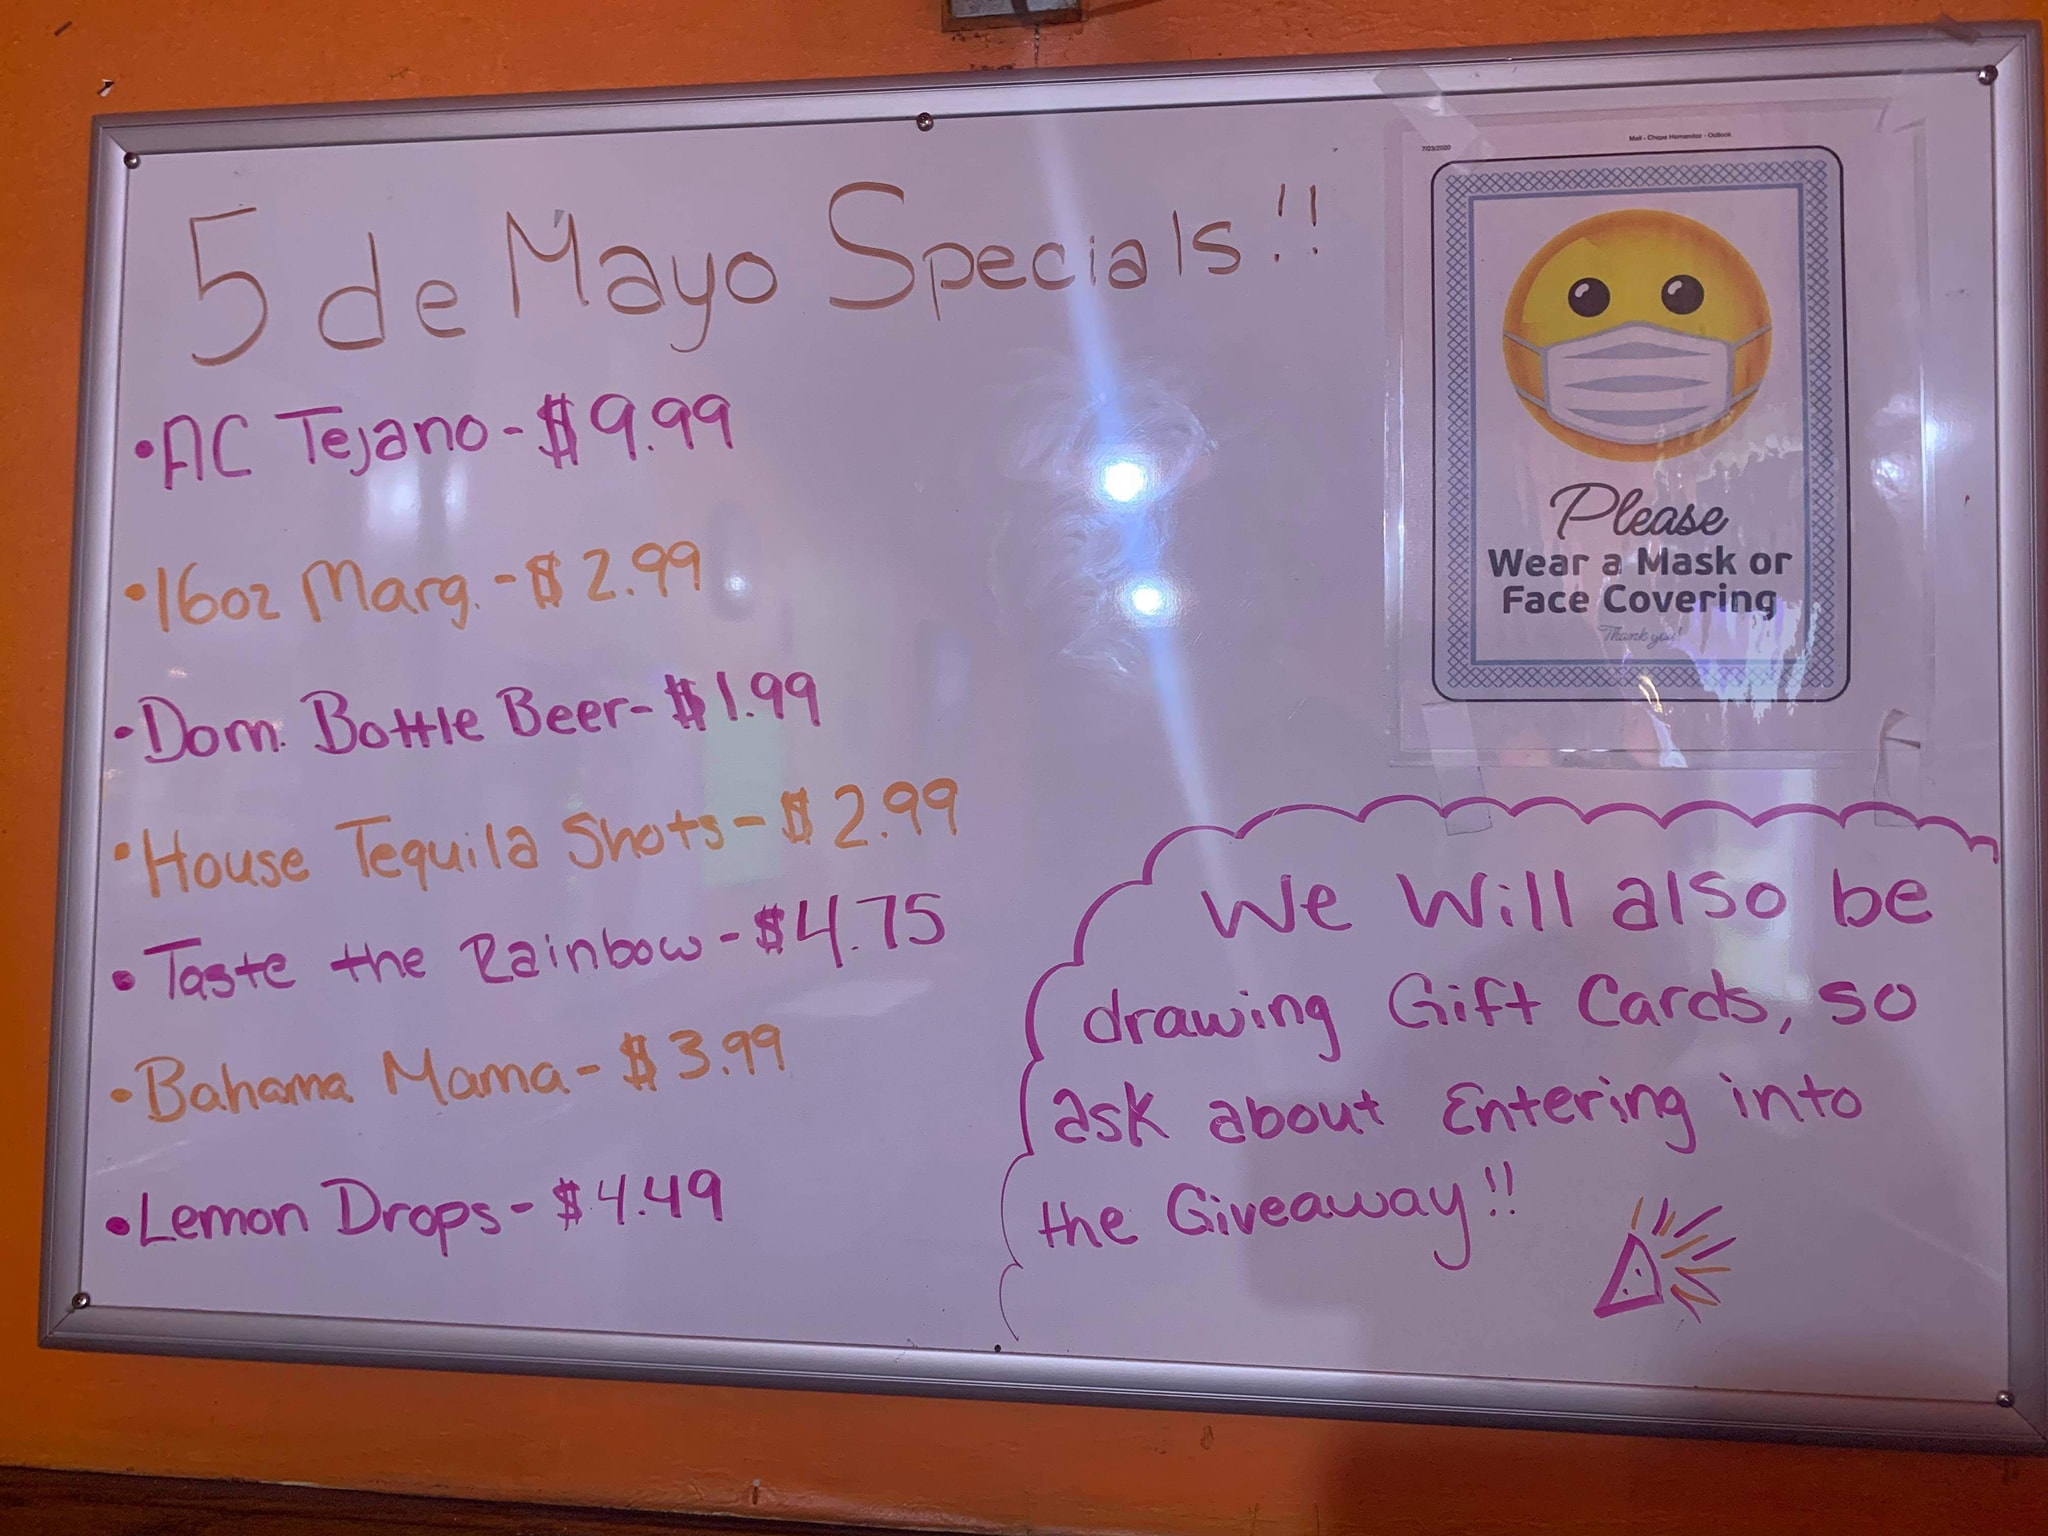 5 de Mayo Specials!!
• AC Tejano - $9.99
• 16oz Marg. - $2.99
• Dom. Bottle Beer - $1.99
• House Tequila Shots - $2.99
• Taste the Rainbow - $4.75
• Bahama Mama - $3.99
• Lemon Drops - $4.49
7/23/2020
Mail - Chope Hernandez - Outlook
Please
Wear a Mask or
Face Covering
Thank you!
We Will also be
drawing Gift Cards, so
ask about Entering into
the Giveaway!!